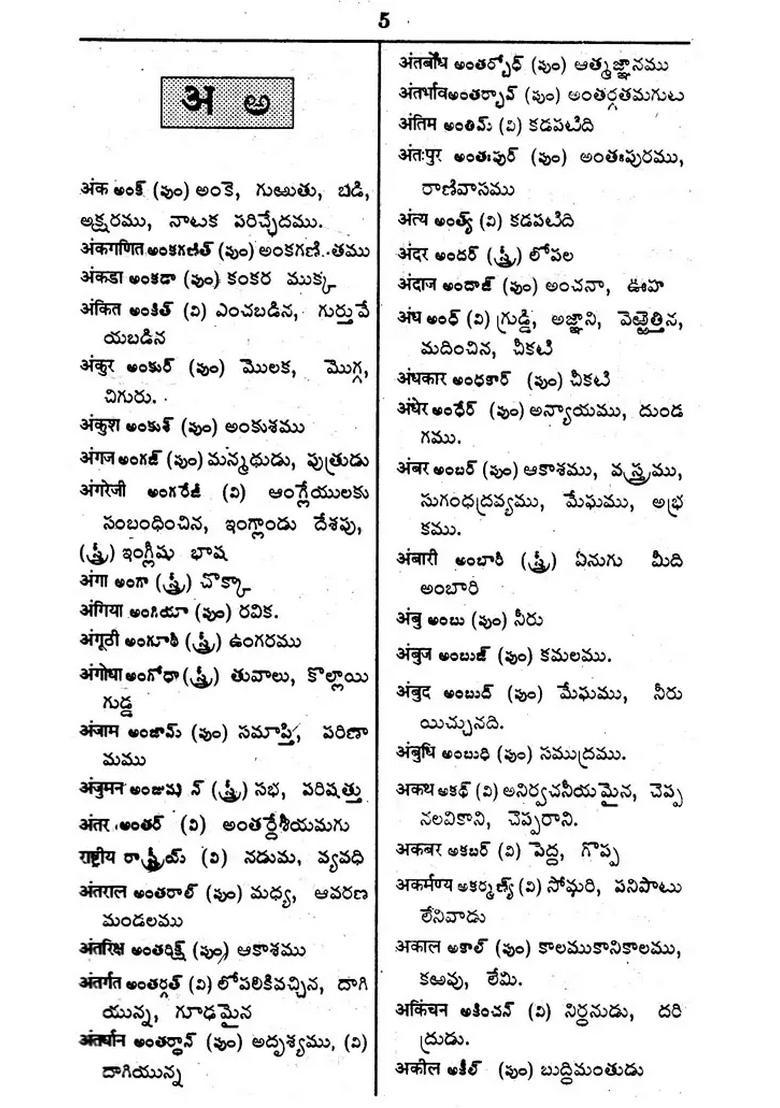 5
अ అ
अंक అంక్ (పుం) అంకె, గుఱుతు, బడి,
అక్షరము, నాటక పరిచ్ఛేదము.
अंकगणित అంకగణిత్ (పుం) అంకగణితము
अंकडा అంకడా (పుం) కంకర ముక్క
अंकित అంకిత్ (వి) ఎంచబడిన, గుర్తువే
యబడిన
अंकुर అంకుర్ (పుం) మొలక, మొగ్గ,
చిగురు.
अंकुश అంకుశ్ (పుం) అంకుశము
अंगज అంగజ్ (పుం) మన్మథుడు, పుత్రుడు
अंगरेजी అంగరేజీ (వి) ఆంగ్లేయులకు
సంబంధించిన, ఇంగ్లాండు దేశపు,
(స్త్రీ) ఇంగ్లీషు భాష
अंगा అంగా (స్త్రీ) చొక్కా
अंगिया అంగియా (పుం) రవిక.
अंगूठी అంగూఠీ (స్త్రీ) ఉంగరము
अंगोधा అంగోధా (స్త్రీ) తువాలు, కొల్లాయి
గుడ్డ
अंजाम అంజామ్ (పుం) సమాప్తి, పరిణా
మము
अंजुमन అంజుమ న్ (స్త్రీ) సభ, పరిషత్తు
अंतर అంతర్ (వి) అంతర్దేశీయమగు
राष्ट्रीय రాష్ట్రీయ్ (వి) నడుమ, వ్యవధి
अंतराल అంతరాల్ (పుం) మధ్య, ఆవరణ
మండలము
अंतरिक्ष అంతరిక్ష్ (పుం) ఆకాశము
अंतर्गत అంతర్గత్ (వి) లోపలికివచ్చిన, దాగి
యున్న, గూఢమైన
अंतर्धान అంతర్ధాన్ (పుం) అదృశ్యము, (వి)
దాగియున్న
अंतर्बोध అంతర్బోధ్ (పుం) ఆత్మజ్ఞానము
अंतर्भाव అంతర్భావ్ (పుం) అంతర్గతమగుట
अंतिम అంతిమ్ (వి) కడపటిది
अंतःपुर అంతఃపుర్ (పుం) అంతఃపురము,
రాణివాసము
अंत्य అంత్య్ (వి) కడపటిది
अंदर అందర్ (స్త్రీ) లోపల
अंदाज అందాజ్ (పుం) అంచనా, ఊహ
अंध అంధ్ (వి) గ్రుడ్డి, అజ్ఞాని, వెఱ్ఱెత్తిన,
మదించిన, చీకటి
अंधकार అంధకార్ (పుం) చీకటి
अंधेर అంధేర్ (పుం) అన్యాయము, దుండ
గము.
अंबर అంబర్ (పుం) ఆకాశము, వస్త్రము,
సుగంధద్రవ్యము, మేఘము, అభ్ర
కము.
अंबारी అంబారీ (స్త్రీ) ఏనుగు మీది
అంబారి
अंबु అంబు (పుం) నీరు
अंबुज అంబుజ్ (పుం) కమలము.
अंबुद అంబుద్ (పుం) మేఘము, నీరు
యిచ్చునది.
अंबुधि అంబుధి (పుం) సముద్రము.
अकथ అకథ్ (వి) అనిర్వచనీయమైన, చెప్ప
నలవికాని, చెప్పరాని.
अकबर అకబర్ (వి) పెద్ద, గొప్ప
अकर्मण्य అకర్మణ్య్ (వి) సోమరి, పనిపాటు
లేనివాడు
अकाल అకాల్ (పుం) కాలముకానికాలము,
కఱవు, లేమి.
अकिंचन అకించన్ (వి) నిర్ధనుడు, దరి
ద్రుడు.
अकील అకీల్ (పుం) బుద్ధిమంతుడు